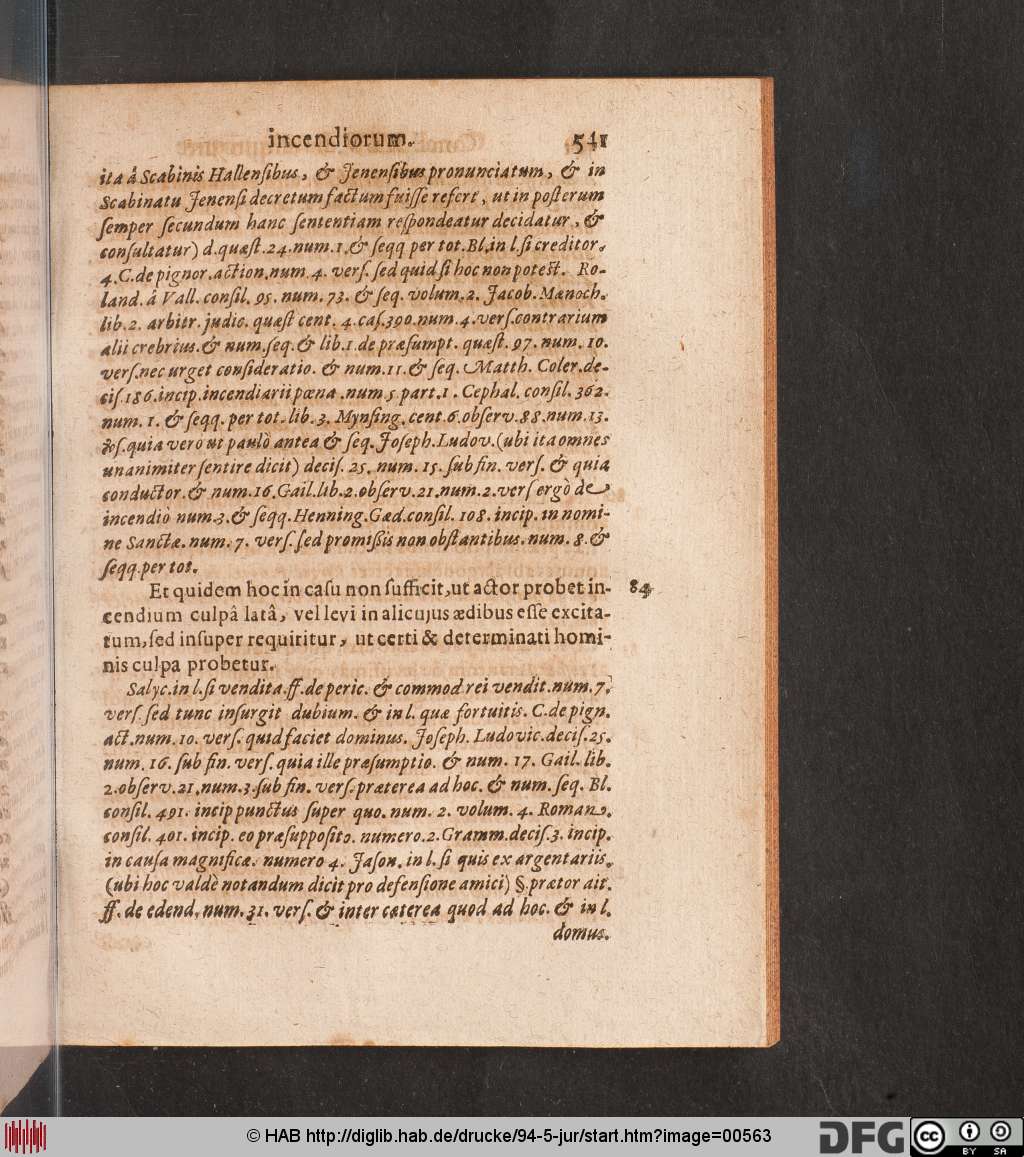 incendiorum. 541
ita á Scabinis Hallensibus, & Jenensibus pronunciatum, & in
Scabinatu Jenensi decretum factum fuisse refert, ut in posterum
semper secundum hanc sententiam respondeatur decidatur, &
consultatur) d. quæst. 24. num. 1. & seqq per tot. Bl. in l. si creditor.
4. C. de pignor. action. num. 4. vers. sed quid si hoc non potest. Ro-
land. á Vall. consil. 95. num. 73. & seq. volum. 2. Jacob. Mænoch.
lib. 2. arbitr. judic. quæst cent. 4. cas. 390. num. 4. vers. contrarium
alii crebrius. & num. seq. & lib. 1. de præsumpt. quæst. 97. num. 10.
vers. nec urget consideratio. & num. 11. & seq. Matth. Coler. de-
cis. 186. incip. incendiarii pœna. num. 5. part. 1. Cephal. consil. 362.
num. 1. & seqq. per tot. lib. 3. Mynsing. cent. 6. observ. 88. num. 13.
&s. quia verò ut paulò antea & seq. Joseph. Ludov. (ubi ita omnes
unanimiter sentire dicit) decis. 25. num. 15. sub fin. vers. & quia
conductor. & num. 16. Gail. lib. 2. observ. 21. num. 2. vers ergò de
incendiò num. 3. & seqq. Henning. Gœd. consil. 108. incip. in nomi-
ne Sanctæ. num. 7. vers. sed promißis non obstantibus. num. 8. &
seqq. per tot.
Et quidem hoc in casu non sufficit, ut actor probet in- 84
cendium culpâ latâ, vel levi in alicujus ædibus esse excita-
tum, sed insuper requiritur, ut certi & determinati homi-
nis culpa probetur.
Salyc. in l. si vendita. ff. de peric. & commod rei vendit. num. 7.
vers. sed tunc insurgit dubium. & in l. quæ fortuitis. C. de pign.
act. num. 10. vers. quid faciet dominus. Joseph. Ludovic. decis. 25.
num. 16. sub fin. vers. quia ille præsumptio. & num. 17. Gail. lib.
2. observ. 21. num. 3. sub fin. vers. præterea ad hoc. & num. seq. Bl.
consil. 491. incip punctus super quo. num. 2. volum. 4. Roman.
consil. 401. incip. eo præsupposito. numero. 2. Gramm. decis. 3. incip.
in causa magnificæ. numero 4. Jason. in l. si quis ex argentariis.
(ubi hoc valdè notandum dicit pro defensione amici) §. prætor ait.
ff. de edend. num. 31. vers. & inter cæterea quod ad hoc. & in l.
domus.
© HAB http://diglib.hab.de/drucke/94-5-jur/start.htm?image=00563
DFG
cc
BY SA